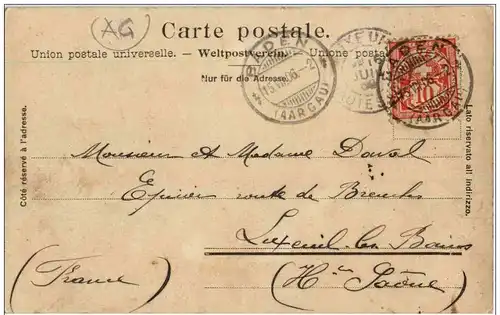 (AG)
Carte postale.
Union postale universelle. — Weltpostverein. — Unione postale
Nur für die Adresse.
BADEN
(AARGAU)
BADEN
(AARGAU)
10
Côté réservé à l'adresse.
Lato riservato all indirizzo.
Monsieur et Madame
Epicier route de
Luxeuil-les-Bains
(France) (Hte Saône)